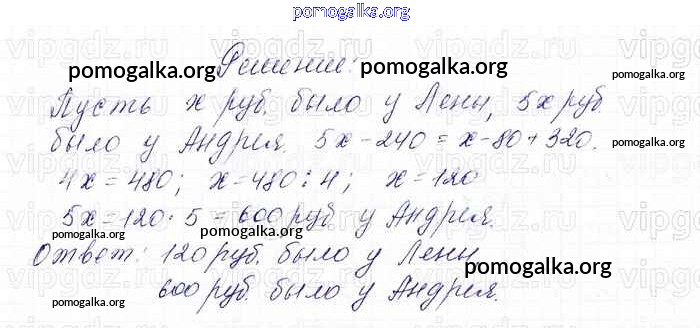 pomogalka.org
Решение:
pomogalka.org pomogalka.org
Пусть x руб. было у Лены, 5x руб.
было у Андрея. 5x-240=x-80+320.
pomogalka.org
4x=480; x=480:4; x=120
5x=120·5=600 руб. у Андрея.
pomogalka.org
Ответ: 120 руб. было у Лены,
pomogalka.org pomogalka.org
600 руб. было у Андрея.
pomogalka.org